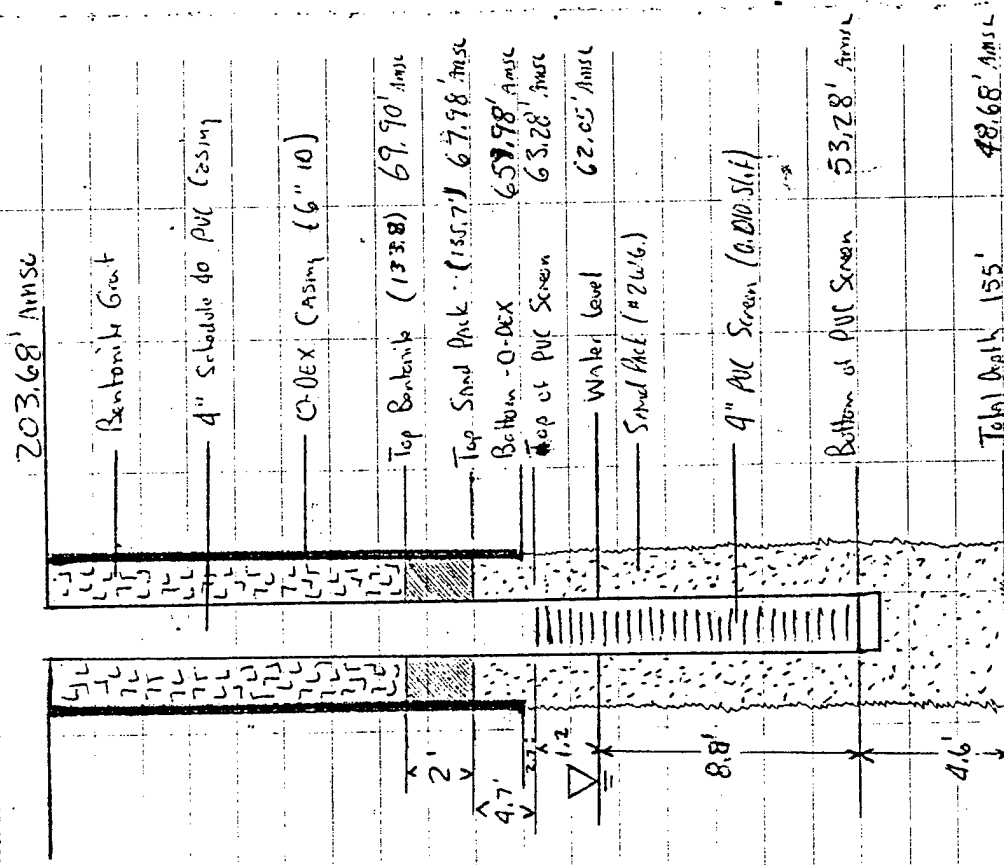 203.68' AMSL
Bentonite Grout
4" Schedule 40 PVC Casing
O-DEX CASING (6" ID)
Top Bentonite (133.8) 69.90' AMSL
Top Sand Pack (135.7') 67.98' AMSL
Bottom - O-DEX AMSL
Top of PVC Screen 63.28' AMSL
Water Level 62.05' AMSL
Sand Pack
4" PVC Screen (0.010 Slit)
Bottom of PVC Screen 53.28' AMSL
Total Depth 155' 48.68' AMSL
2'
4.7'
1.2
8.8'
4.6'